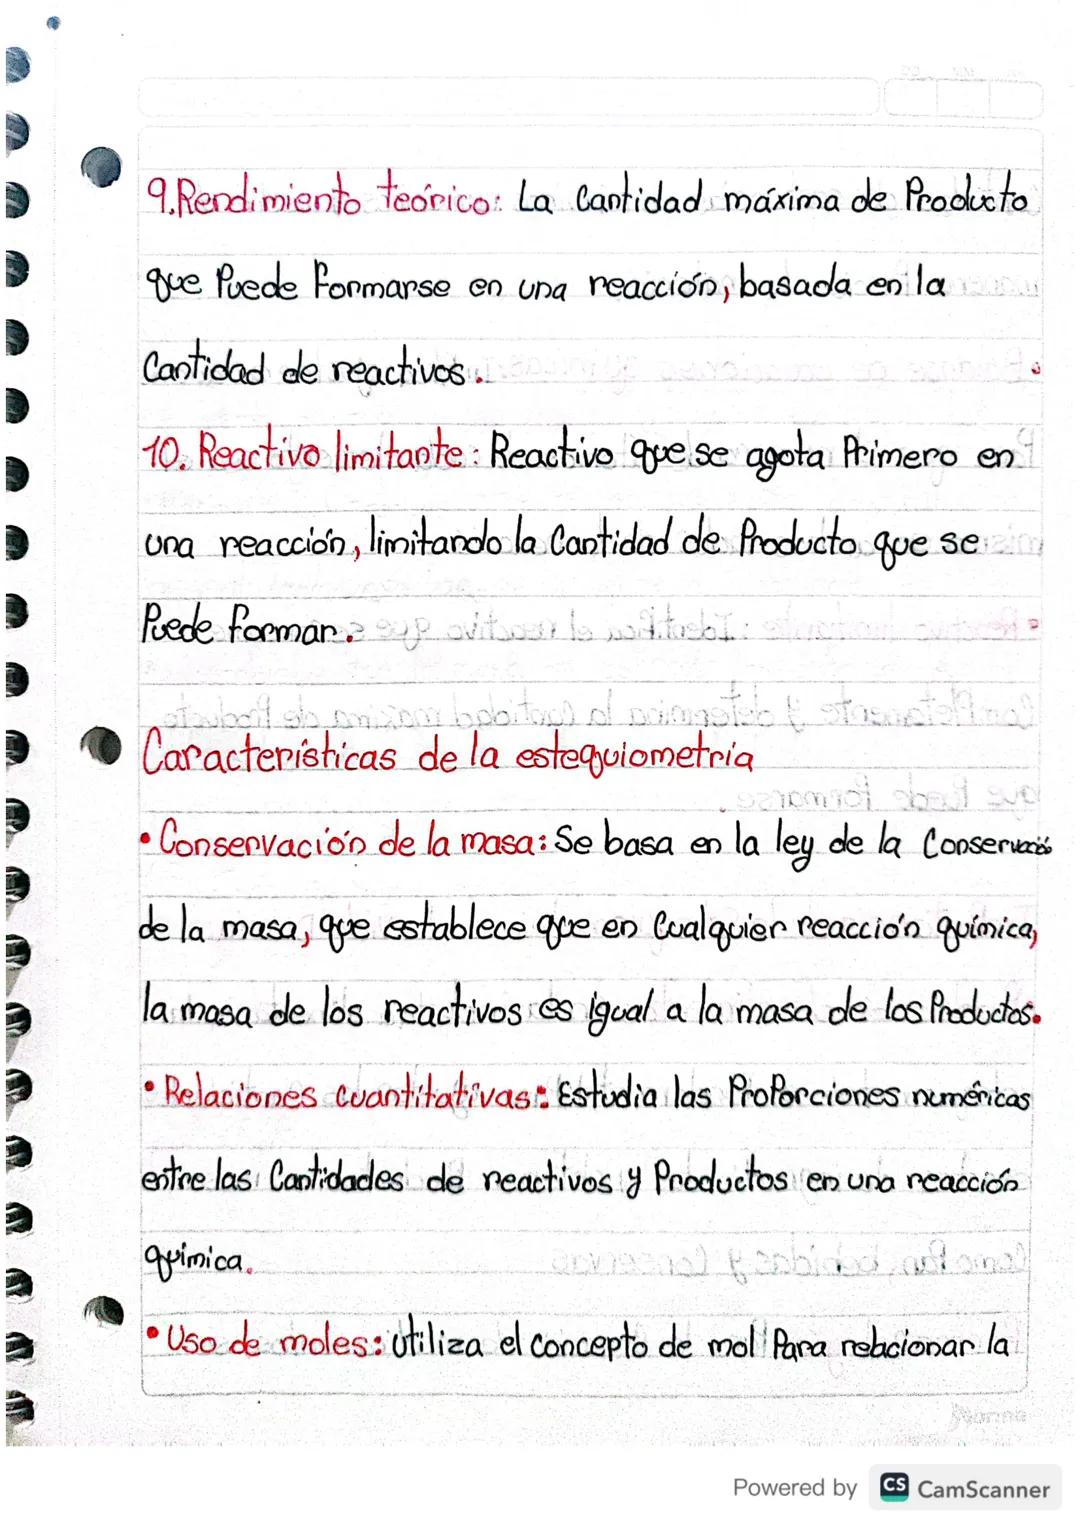 9.Rendimiento teórico: La Cantidad máxima de Producto
que Puede Formarse en una reacción, basada en la
Cantidad de reactivos.
10. Reactivo limitante: Reactivo que se agota Primero en
una reacción, limitando la Cantidad de Producto que se
Puede formar.
Características de la estequiometría
• Conservación de la masa: Se basa en la ley de la Conservación
de la masa, que establece que en Cualquier reacción química,
la masa de los reactivos es igual a la masa de los Productos.
• Relaciones cuantitativas: Estudia las Proporciones numéricas
entre las Cantidades de reactivos y Productos en una reacción
química.
• Uso de moles: utiliza el concepto de mol Para relacionar la
Norma
Powered by CS CamScanner